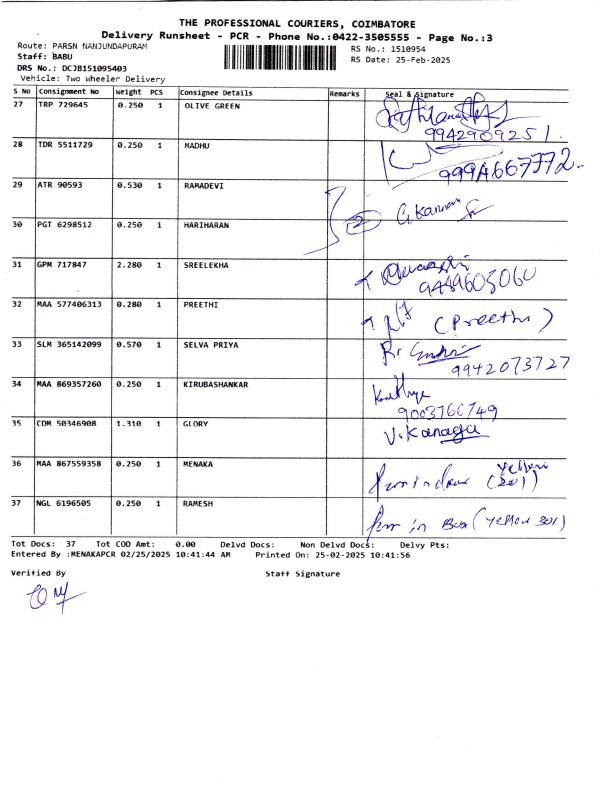 THE PROFESSIONAL COURIERS, COIMBATORE
Delivery Runsheet - PCR - Phone No.:0422-3505555 - Page No.:3
Route: PARSN NANJUNDAPURAM
RS No.: 1510954
Staff: BABU
RS Date: 25-Feb-2025
DRS No.: DCJB151095403
Vehicle: Two Wheeler Delivery
S No Consignment No Weight PCS Consignee Details Remarks Seal & Signature
27 TRP 729645 0.250 1 OLIVE GREEN
9942909251.
28 TDR 5511729 0.250 1 MADHU
9994667772..
29 ATR 90593 0.530 1 RAMADEVI
2 G Kannan
30 PGT 6298512 0.250 1 HARIHARAN
31 GPM 717847 2.280 1 SREELEKHA
9489605060
32 MAA 577406313 0.280 1 PREETHI
(Preethi)
33 SLM 365142099 0.570 1 SELVA PRIYA
9942073727
34 MAA 869357260 0.250 1 KIRUBASHANKAR
9003766749
35 CDM 50346908 1.310 1 GLORY
V.Kanaga
36 MAA 867559358 0.250 1 MENAKA
(201)
37 NGL 6196505 0.250 1 RAMESH
in Box (Yellow 301)
Tot Docs: 37 Tot COD Amt: 0.00 Delvd Docs: Non Delvd Docs: Delvy Pts:
Entered By :MENAKAPCR 02/25/2025 10:41:44 AM Printed On: 25-02-2025 10:41:56
Verified By Staff Signature